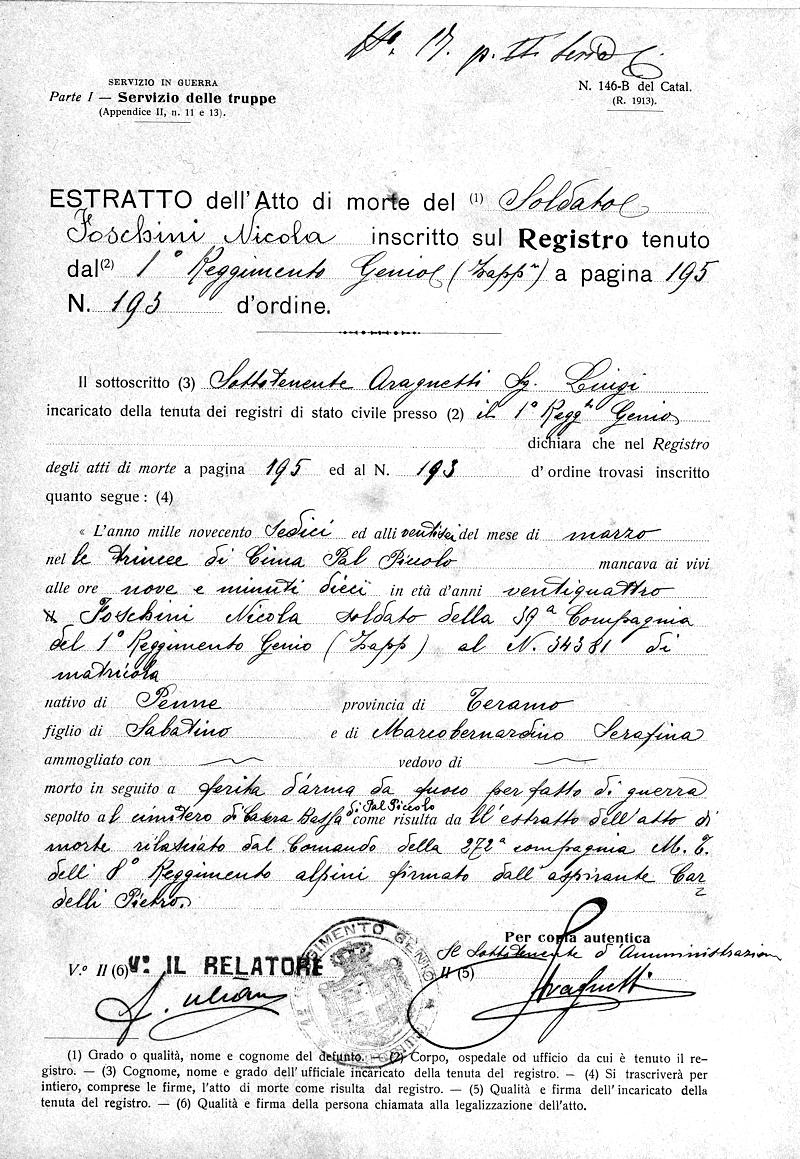 N. 17. p. II serie C
SERVIZIO IN GUERRA
Parte I — Servizio delle truppe
(Appendice II, n. 11 e 13).
N. 146-B del Catal.
(R. 1913).
ESTRATTO dell'Atto di morte del (1) Soldato
Foschini Nicola inscritto sul Registro tenuto
dal (2) 1° Reggimento Genio (Zappri) a pagina 195
N. 193 d'ordine.
Il sottoscritto (3) Sottotenente Aragnetti Sg. Luigi
incaricato della tenuta dei registri di stato civile presso (2) il 1° Regg to Genio
dichiara che nel Registro
degli atti di morte a pagina 195 ed al N. 193 d'ordine trovasi inscritto
quanto segue: (4)
« L'anno mille novecento sedici ed alli ventisei del mese di marzo
nel le trincee di Cima Pal Piccolo mancava ai vivi
alle ore nove e minuti dieci in età d'anni ventiquattro
Il Foschini Nicola soldato della 39a Compagnia
del 1° Reggimento Genio (Zapp) al N. 34381 di
matricola
nativo di Penne provincia di Teramo
figlio di Sabatino e di Marcobernardino Serafina
ammogliato con vedovo di
morto in seguito a ferita d'arma da fuoco per fatto di guerra
sepolto al cimitero di Casera Bassa di Pal Piccolo come risulta da ll'estratto dell'atto di
morte rilasciato dal Comando della 272a compagnia M. T.
dell' 8° Reggimento alpini firmato dall'aspirante Car
delli Pietro.
Per copia autentica
Il Sottotenente d'Amministrazione
V.° Il (6) V° IL RELATORE
Il (5) Aragnetti
REGGIMENTO GENIO
(1) Grado o qualità, nome e cognome del defunto. — (2) Corpo, ospedale od ufficio da cui è tenuto il re-
gistro. — (3) Cognome, nome e grado dell'ufficiale incaricato della tenuta del registro. — (4) Si trascriverà per
intiero, comprese le firme, l'atto di morte come risulta dal registro. — (5) Qualità e firma dell'incaricato della
tenuta del registro. — (6) Qualità e firma della persona chiamata alla legalizzazione dell'atto.